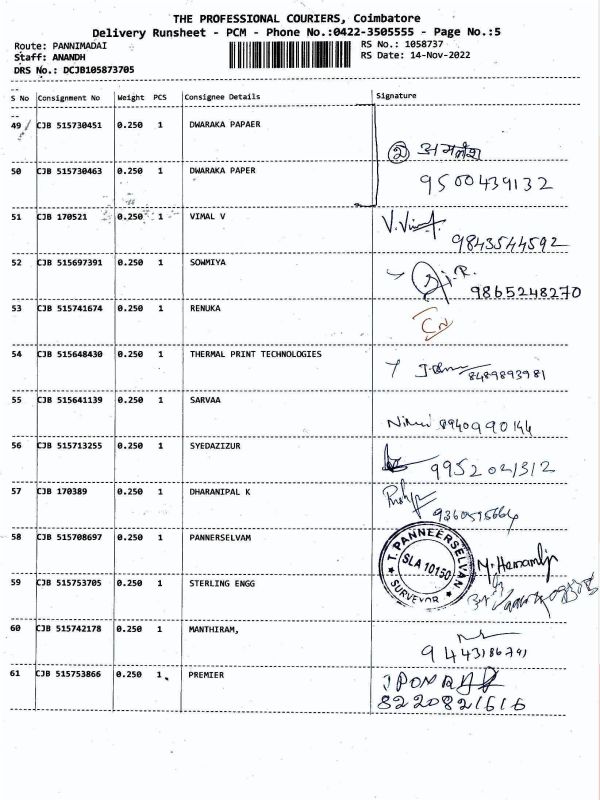 THE PROFESSIONAL COURIERS, Coimbatore
Delivery Runsheet - PCM - Phone No.:0422-3505555 - Page No.:5
Route: PANNIMADAI RS No.: 1058737
Staff: ANANDH RS Date: 14-Nov-2022
DRS No.: DCJB105873705
S No Consignment No Weight PCS Consignee Details Signature
49 CJB 515730451 0.250 1 DWARAKA PAPAER
50 CJB 515730463 0.250 1 DWARAKA PAPER 9500439132
51 CJB 170521 0.250 1 VIMAL V V.Vimal 9843544592
52 CJB 515697391 0.250 1 SOWMIYA 9865248270
53 CJB 515741674 0.250 1 RENUKA
54 CJB 515648430 0.250 1 THERMAL PRINT TECHNOLOGIES 8489893981
55 CJB 515641139 0.250 1 SARVAA 8940990144
56 CJB 515713255 0.250 1 SYEDAZIZUR
57 CJB 170389 0.250 1 DHARANIPAL K
58 CJB 515708697 0.250 1 PANNERSELVAM T. PANNEERSELVAN SLA 10150 SURVEYOR
59 CJB 515753705 0.250 1 STERLING ENGG
60 CJB 515742178 0.250 1 MANTHIRAM, 9443186791
61 CJB 515753866 0.250 1 PREMIER
8220821616